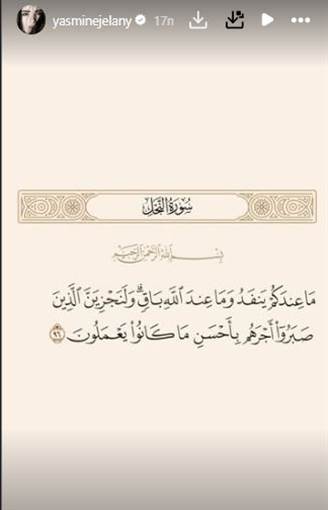 yasminejelany 17n
سُورَةُ النَّحْلِ
بِسْمِ اللَّهِ الرَّحْمَٰنِ الرَّحِيمِ
مَا عِندَكُمْ يَنفَدُ وَمَا عِندَ اللَّهِ بَاقٍ ۗ وَلَنَجْزِيَنَّ الَّذِينَ
صَبَرُوا أَجْرَهُم بِأَحْسَنِ مَا كَانُوا يَعْمَلُونَ ٩٦